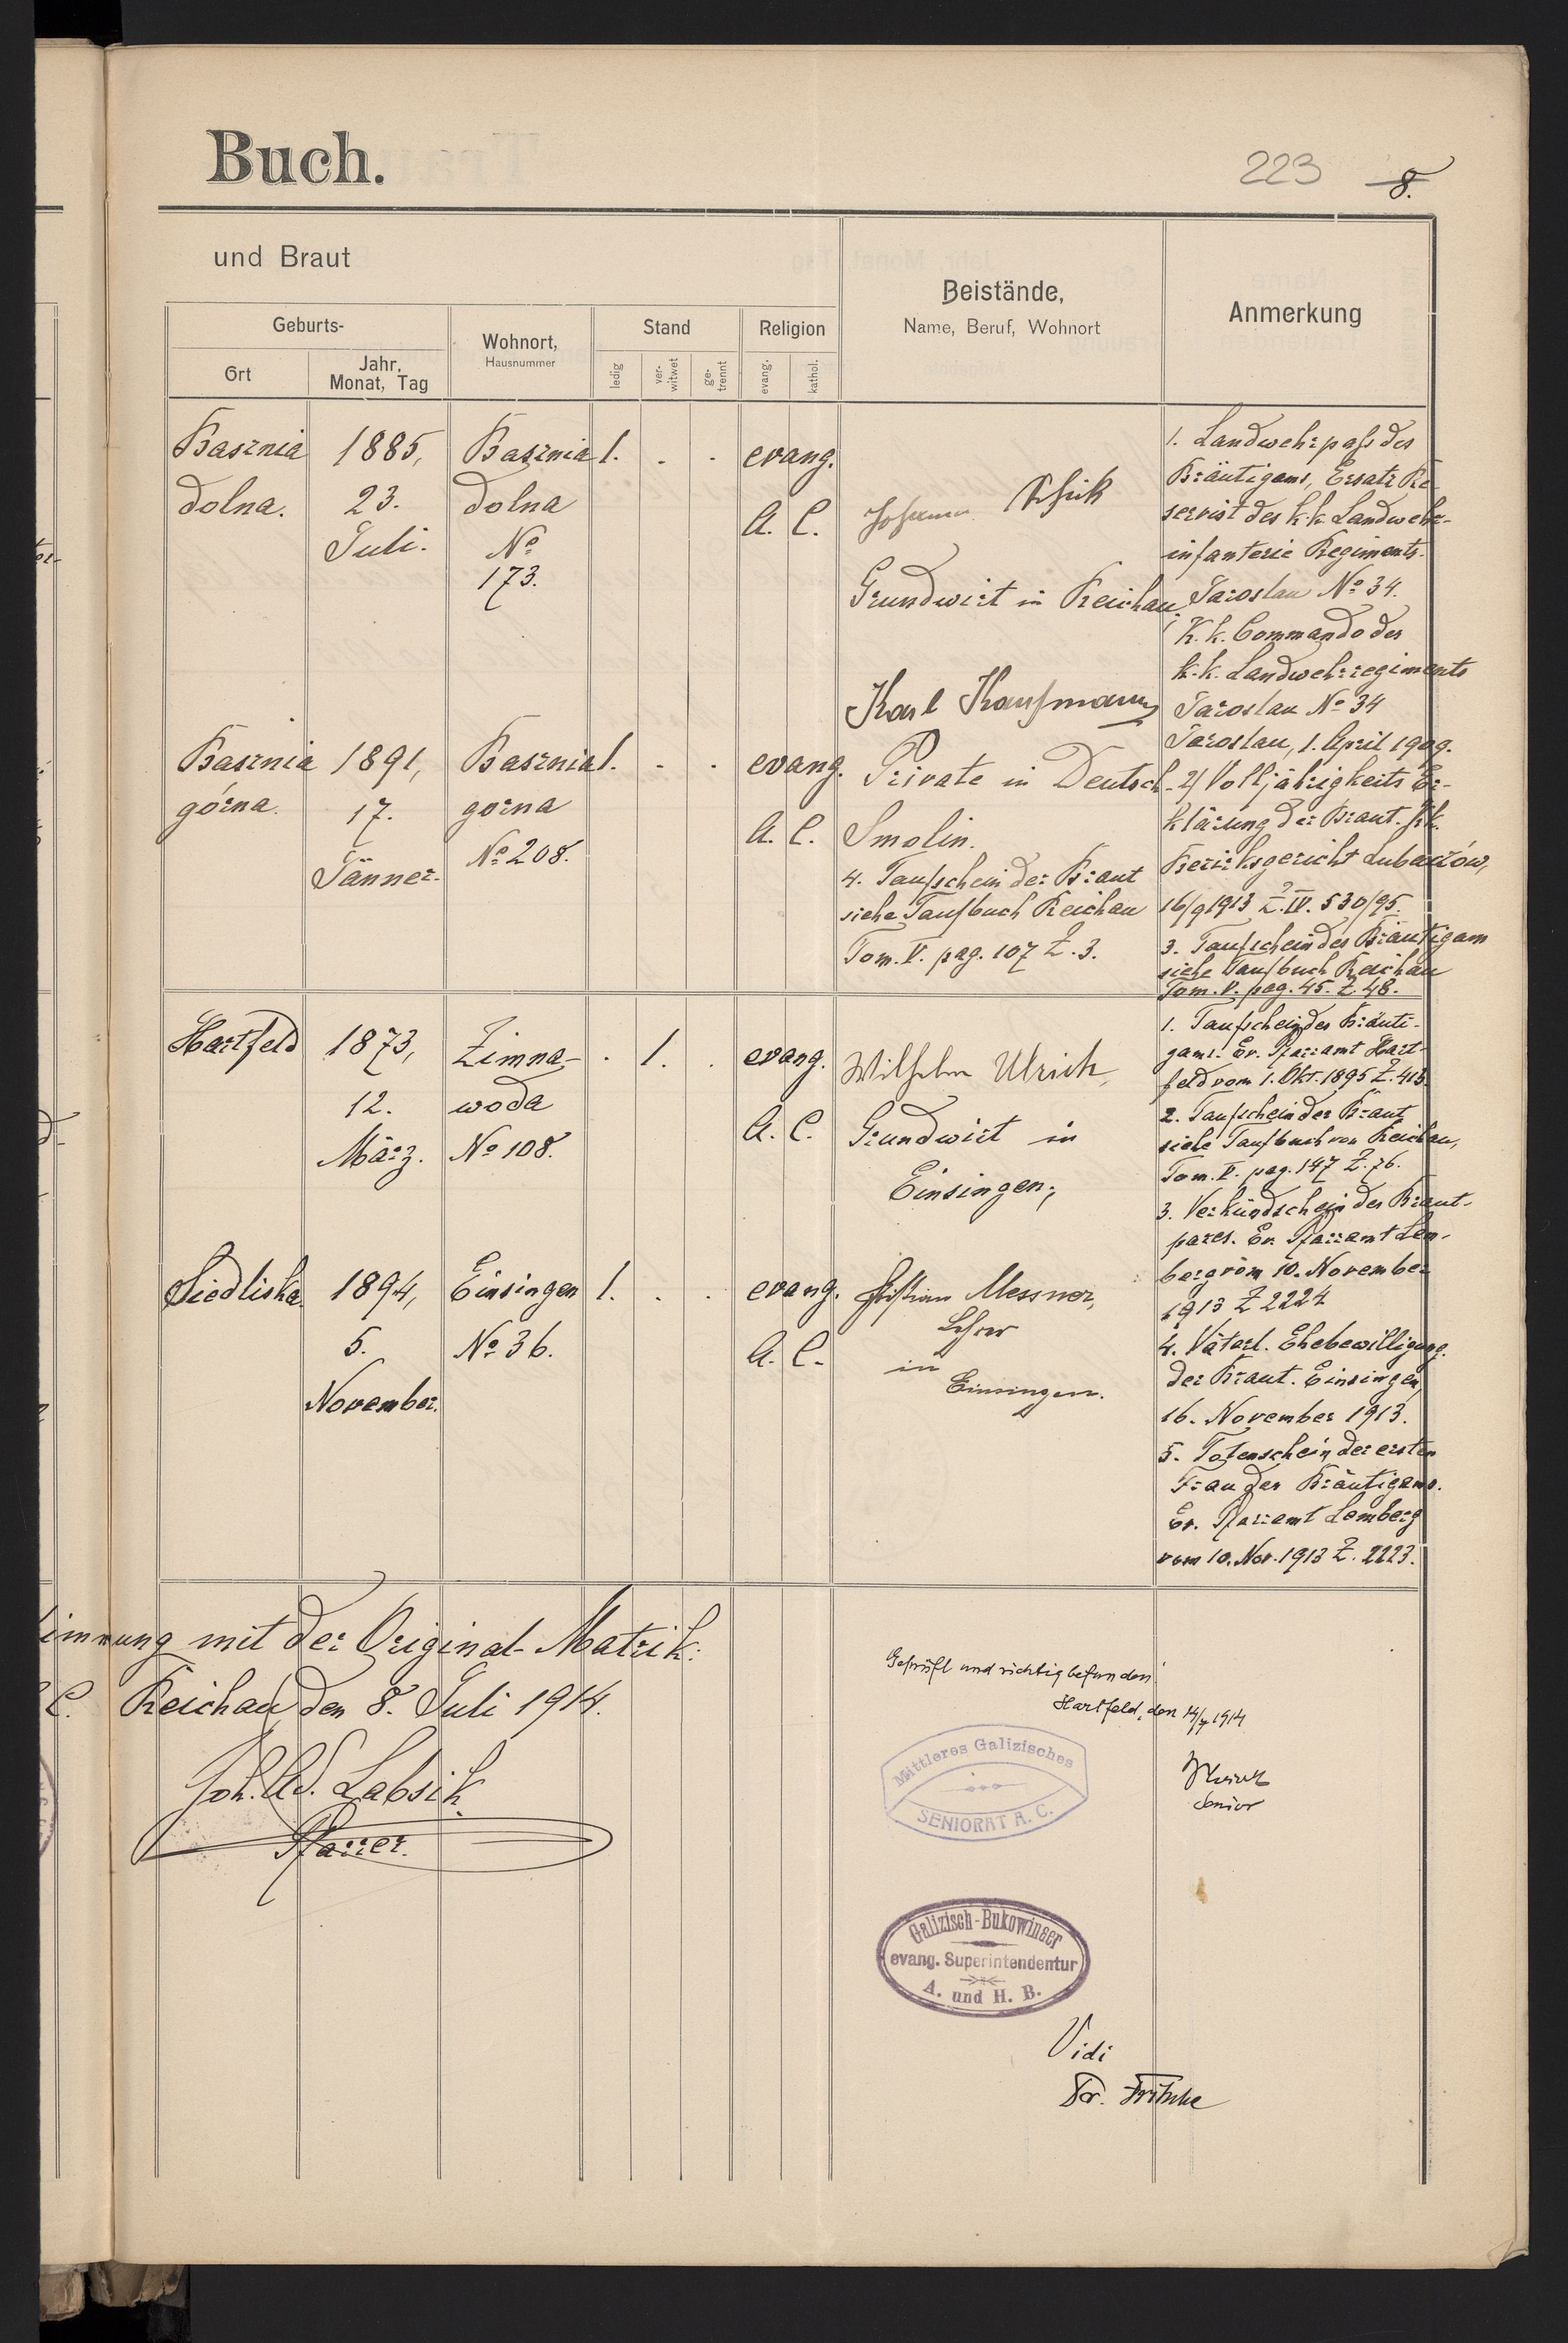 Buch.
223 8.
und Braut
Geburts-
Ort
Jahr, Monat, Tag
Wohnort, Hausnummer
Stand
ledig
ver-witwet
ge-trennt
Religion
evang.
kathol.
Beistände,
Name, Beruf, Wohnort
Anmerkung
Basznia 1885, Basznia 1. . . evang.
dolna. 23. dolna A. C.
Juli. No
173.
Johann
Grundwirt in Reichau,
Karl Kaufmann
Private in Deutsch-
Smolin.
4. Taufschein der Braut
siehe Taufbuch Reichau
Tom. V. pag. 107 Z. 3.
1. Landwehrpaß des
Bräutigams, Ersatz Re-
servist des k.k. Landwehr-
infanterie Regiments.
Jaroslau No 34.
K. k. Commando des
k. k. Landwehrregiments
Jaroslau No 34
Jaroslau, 1. April 1909.
2/ Volljährigkeits Er-
klärung der Braut. K.k.
Bezirksgericht Lubaczów,
16/9 1913 Z. IV. 530/95.
3. Taufschein des Bräutigam
siehe Taufbuch Reichau
Tom. V. pag. 45. Z. 48.
Basznia 1891, Basznia 1. . . evang.
górna. 17. gorna A. C.
Jänner. No 208.
Hartfeld 1873, Zimna- . 1. . evang.
12. woda A. C.
März. No 108.
Wilhelm Ulrich,
Grundwirt in
Einsingen;
Siedliska 1894, Einsingen 1. . . evang.
5. No 36. A. C.
November.
Christian Messner,
Lehrer
in
Einsingen.
1. Taufschein des Bräuti-
gams. Ev. Pfarramt Hart-
feld vom 1. Okt. 1895 Z. 413.
2. Taufschein der Braut
siehe Taufbuch von Reichau,
Tom. V. pag. 147 Z. 76.
3. Verkündschein des Braut-
pares. Ev. Pfarramt Lem-
berg vom 10. November
1913 Z 2224
4. Väterl. Ehebewilligung
der Braut. Einsingen,
16. November 1913.
5. Totenschein der ersten
Frau des Bräutigams.
Ev. Pfarramt Lemberg
vom 10. Nov. 1913 Z. 2223.
timmung mit der Original-Matrik:
C. Reichau, den 8. Juli 1914.
Joh. Ad. Labsik
Pfarrer.
Geprüft und richtig befunden!
Hartfeld, den 14/7 1914
Senior
Mittleres Galizisches
SENIORAT A. C.
Galizisch-Bukowinaer
evang. Superintendentur
A. und H. B.
Vidi
Dr. Fritsche